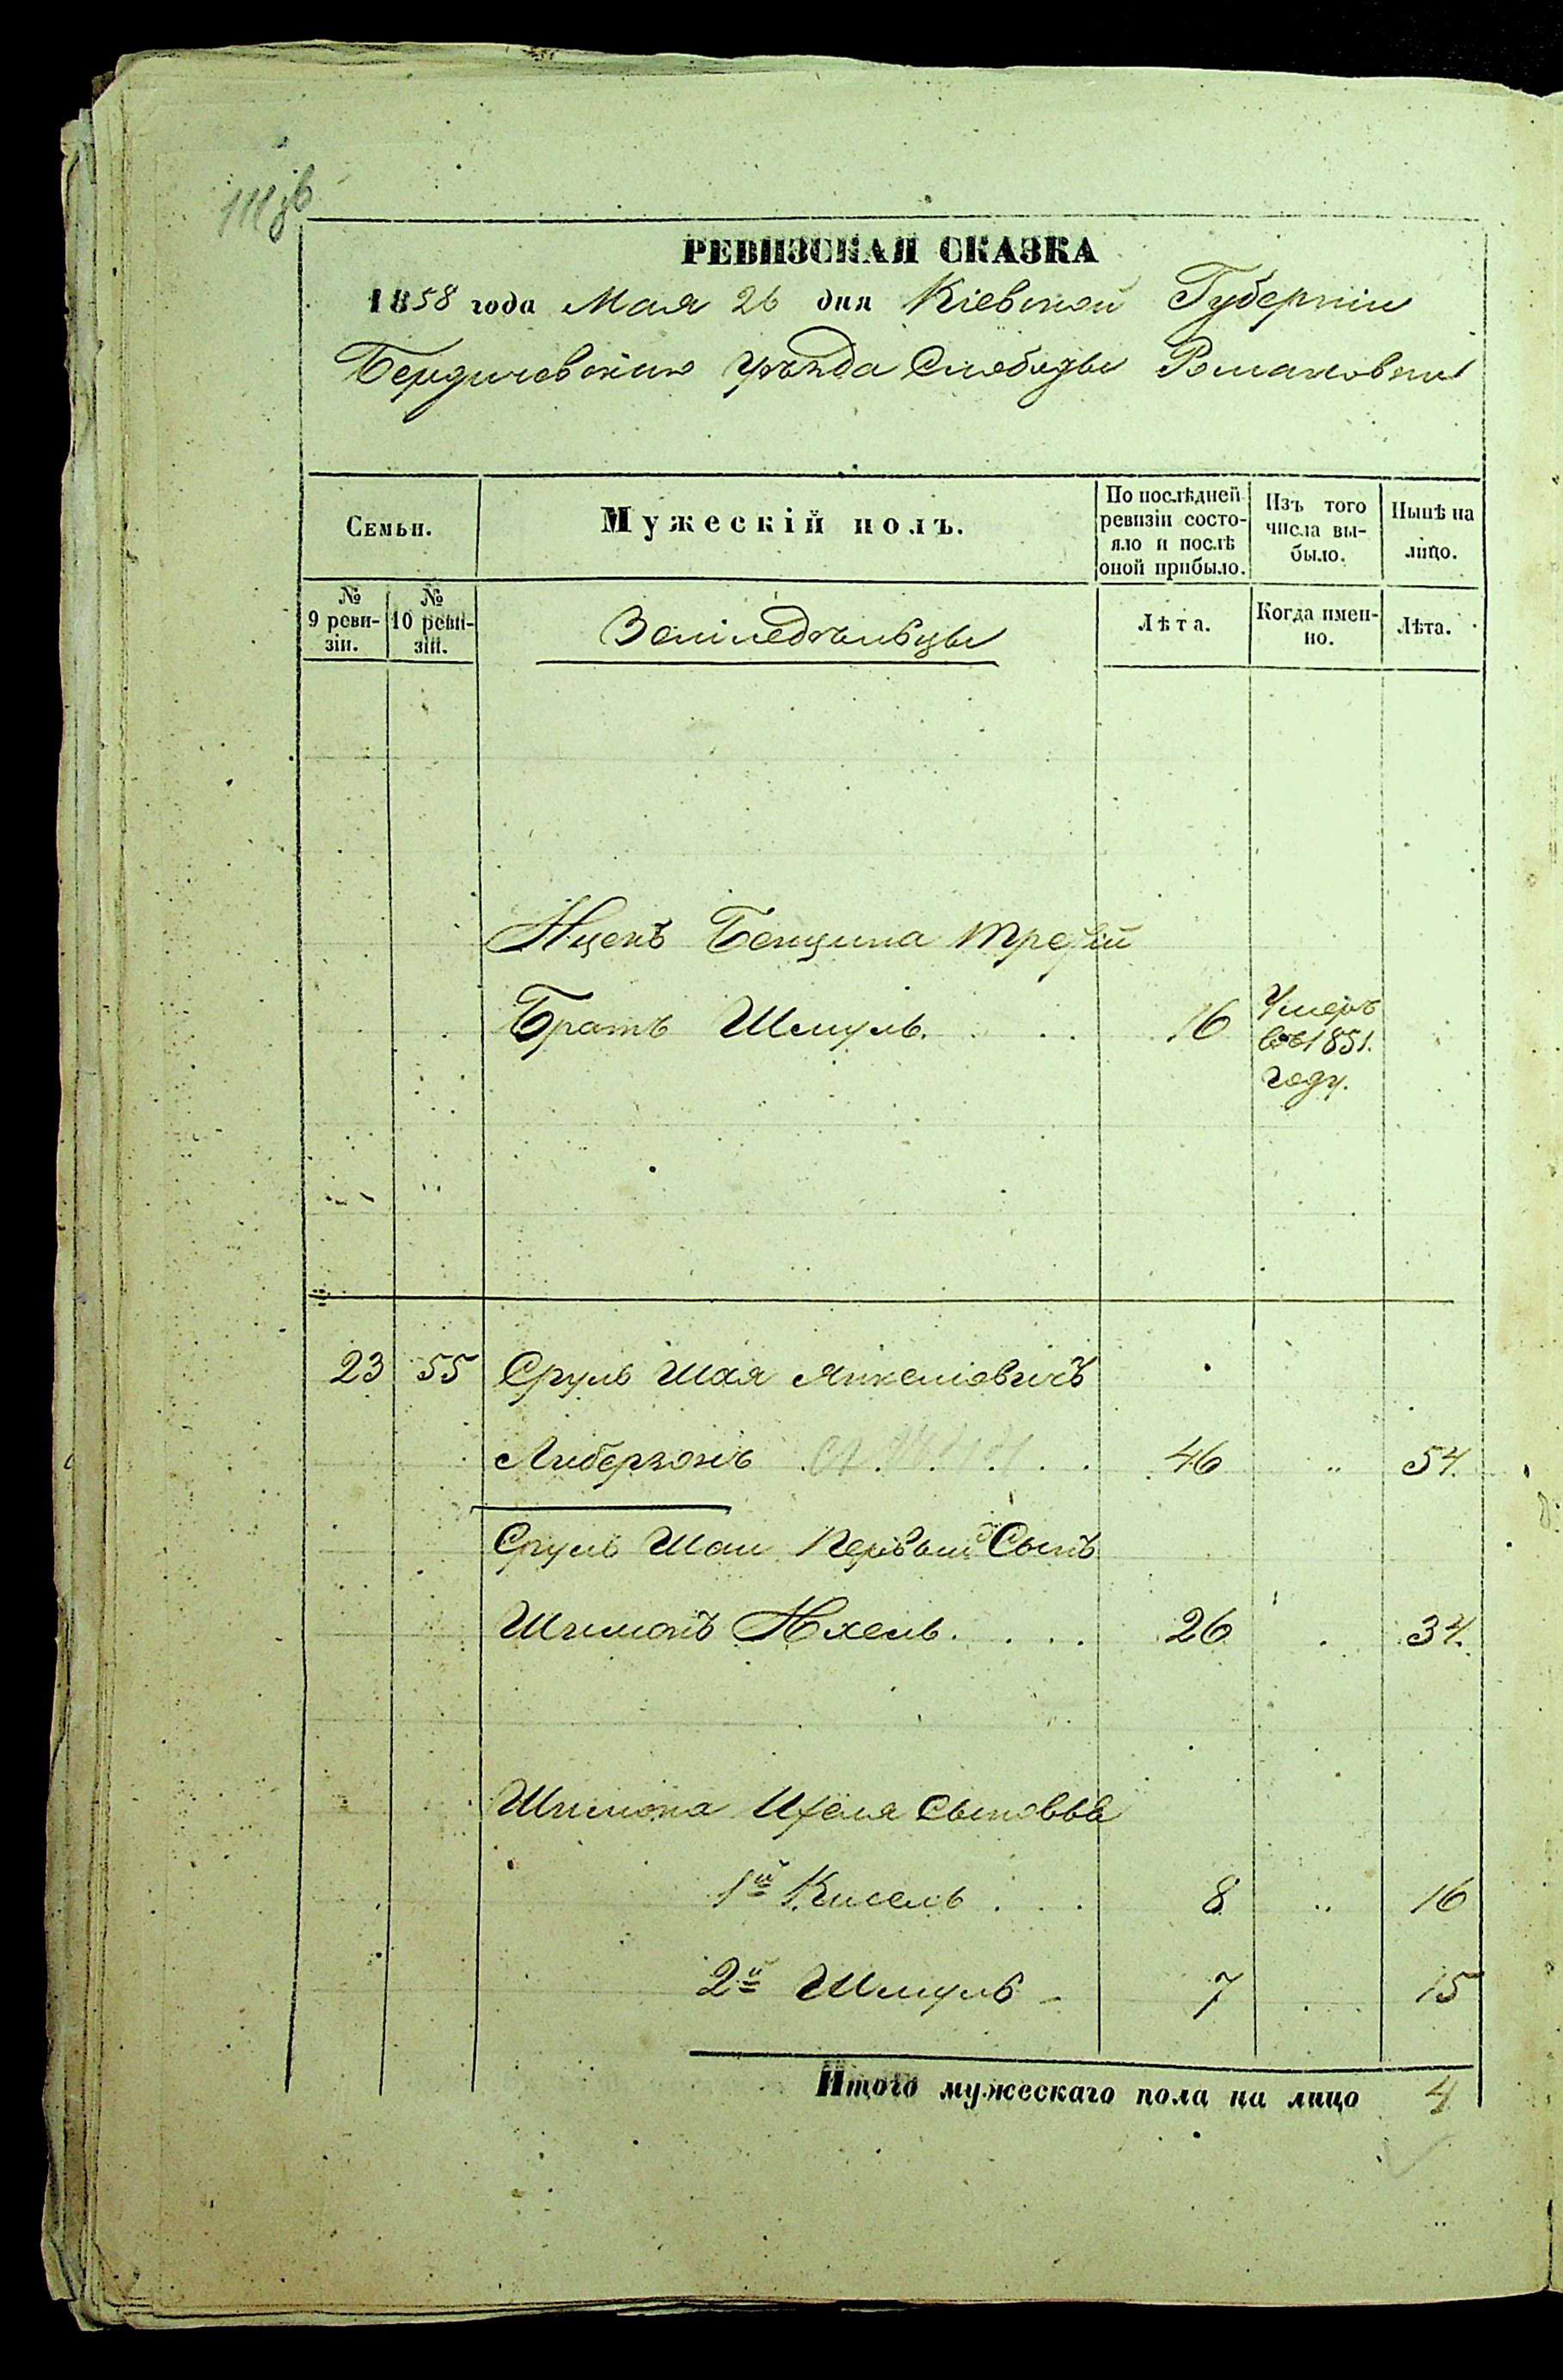 111 зв
РЕВИЗСКАЯ СКАЗКА
1858 года Мая 26 дня Кіевской Губерніи
Бердичевскаго уѣзда Слободы Романовки
Семьи.
Мужескій полъ.
По послѣдней ревизіи состо-
яло и послѣ
оной прибыло.
Изъ того
числа вы-
было.
Нынѣ на
лицо.
№
9 реви-
зіи.
№
10 реви-
зіи.
Земледѣльцы
Лѣта.
Когда имен-
но.
Лѣта.
Ицекъ Бенциона третій
Братъ Шмуль. 16 Умеръ
въ 1851.
году.
23 55 Сруль Шая Янкеліовичъ
Либерзонъ 46 " 54.
Сруль Шаи Первый Сынъ
Шимонъ Ихель. 26 34.
Шимона Ихеля сыновья
1й Кисель 8 " 16
2й Шмуль 7 15
Итого мужескаго пола на лицо 4